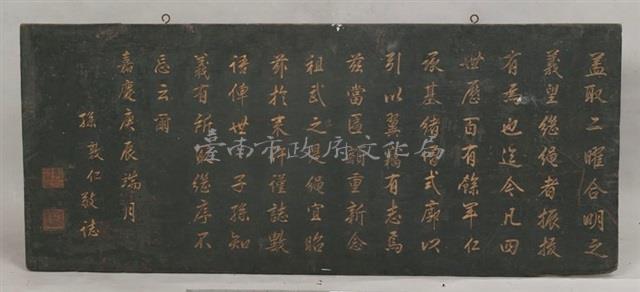 盖取二曜合明之
義望繼繩者振拔
有為也迄今凡四
世歷百有餘年仁
承基緒式廓以
引以翼有志焉
茲當匾重新念
祖武之繩宜昭
茲於来謹誌數
語俾世子孫知
義有所繼序不
忘云爾
嘉慶庚辰端月
孫敦仁敬誌
臺南市政府文化局